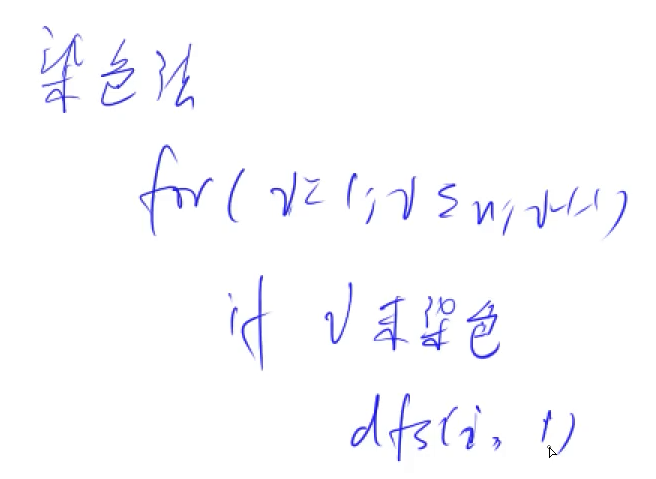 染色法
for( v=1; v≤n; v++)
if v 未染色
dfs(i, 1)